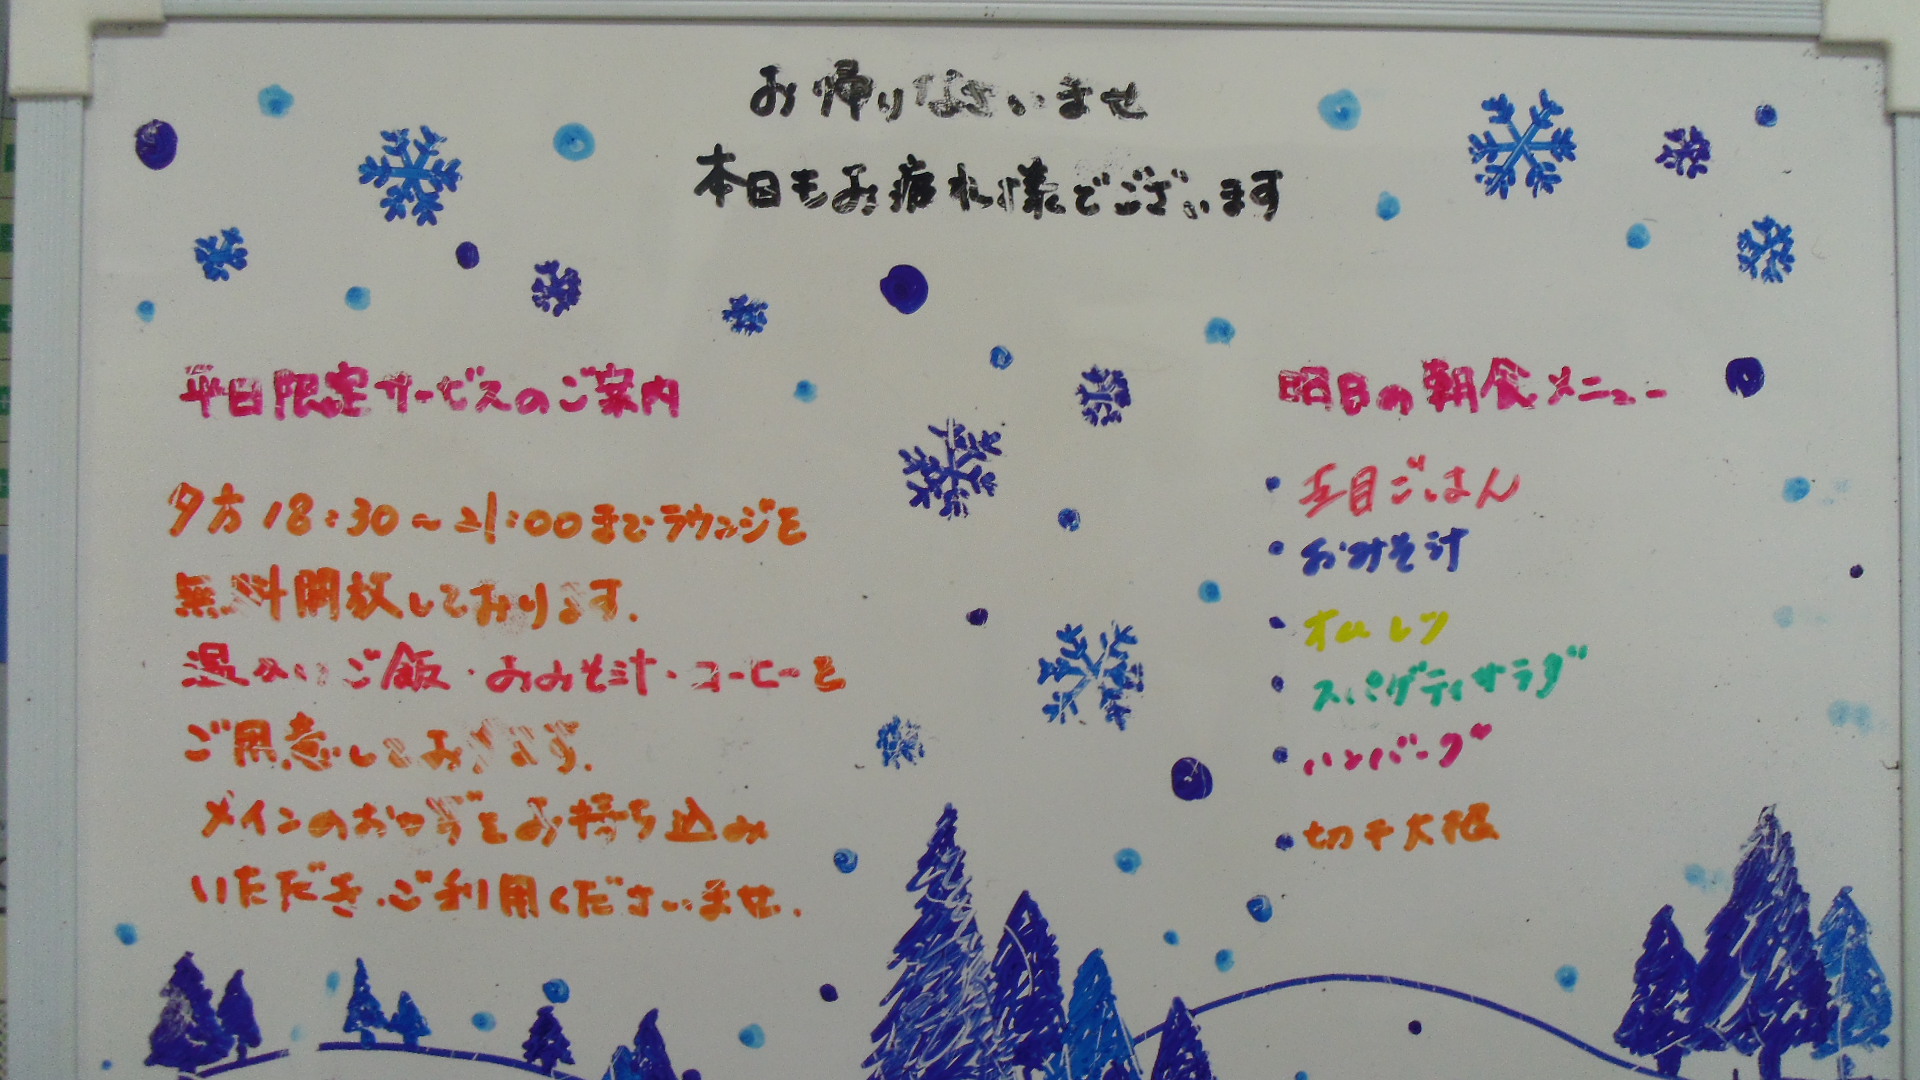 お帰りなさいませ
本日もお疲れ様でございます
平日限定サービスのご案内
夕方18:30～21:00までラウンジを
無料開放しております.
温かいご飯・おみそ汁・コーヒーを
ご用意しております.
メインのおかずをお持ち込み
いただき.ご利用くださいませ.
明日の朝食メニュー
・五目ごはん
・おみそ汁
・オムレツ
・スパゲティサラダ
・ハンバーグ
・切干大根